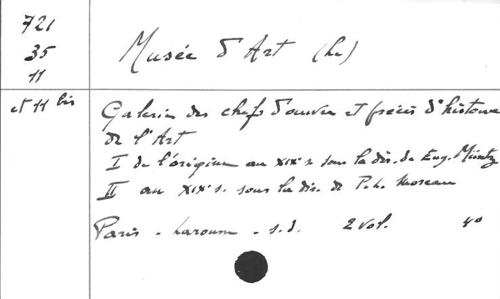 721
35
11
Musée d'Art (Le)
et 11 bis
Galerie des chefs d'œuvre et précis d'histoire
de l'Art
I de l'origine au XIXe s sous la dir. de Eug. Müntz
II au XIXe s. sous la dir. de P. L. Moreau
Paris - Larousse - s.d. 2 vol. 4º